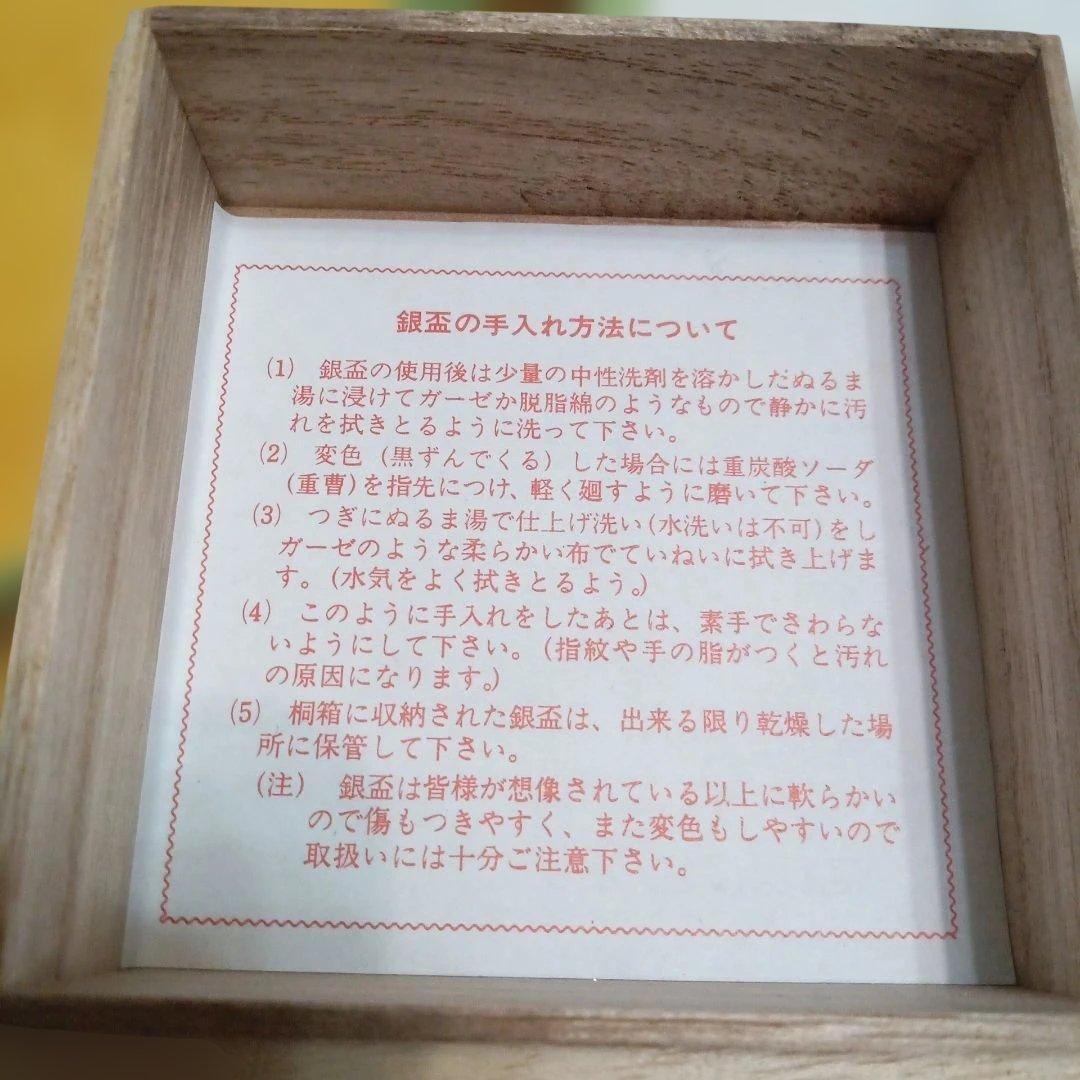 銀盃の手入れ方法について
(1) 銀盃の使用後は少量の中性洗剤を溶かしだぬるま
湯に浸けてガーゼか脱脂綿のようなもので静かに汚
れを拭きとるように洗って下さい。
(2) 変色(黒ずんでくる)した場合には重炭酸ソーダ
(重曹)を指先につけ、軽く廻すように磨いて下さい。
(3) つぎにぬるま湯で仕上げ洗い(水洗いは不可)をし
ガーゼのような柔らかい布でていねいに拭き上げま
す。(水気をよく拭きとるよう。)
(4) このように手入れをしたあとは、素手でさわらな
いようにして下さい。(指紋や手の脂がつくと汚れ
の原因になります。)
(5) 桐箱に収納された銀盃は、出来る限り乾燥した場
所に保管して下さい。
(注) 銀盃は皆様が想像されている以上に軟らかい
ので傷もつきやすく、また変色もしやすいので
取扱いには十分ご注意下さい。